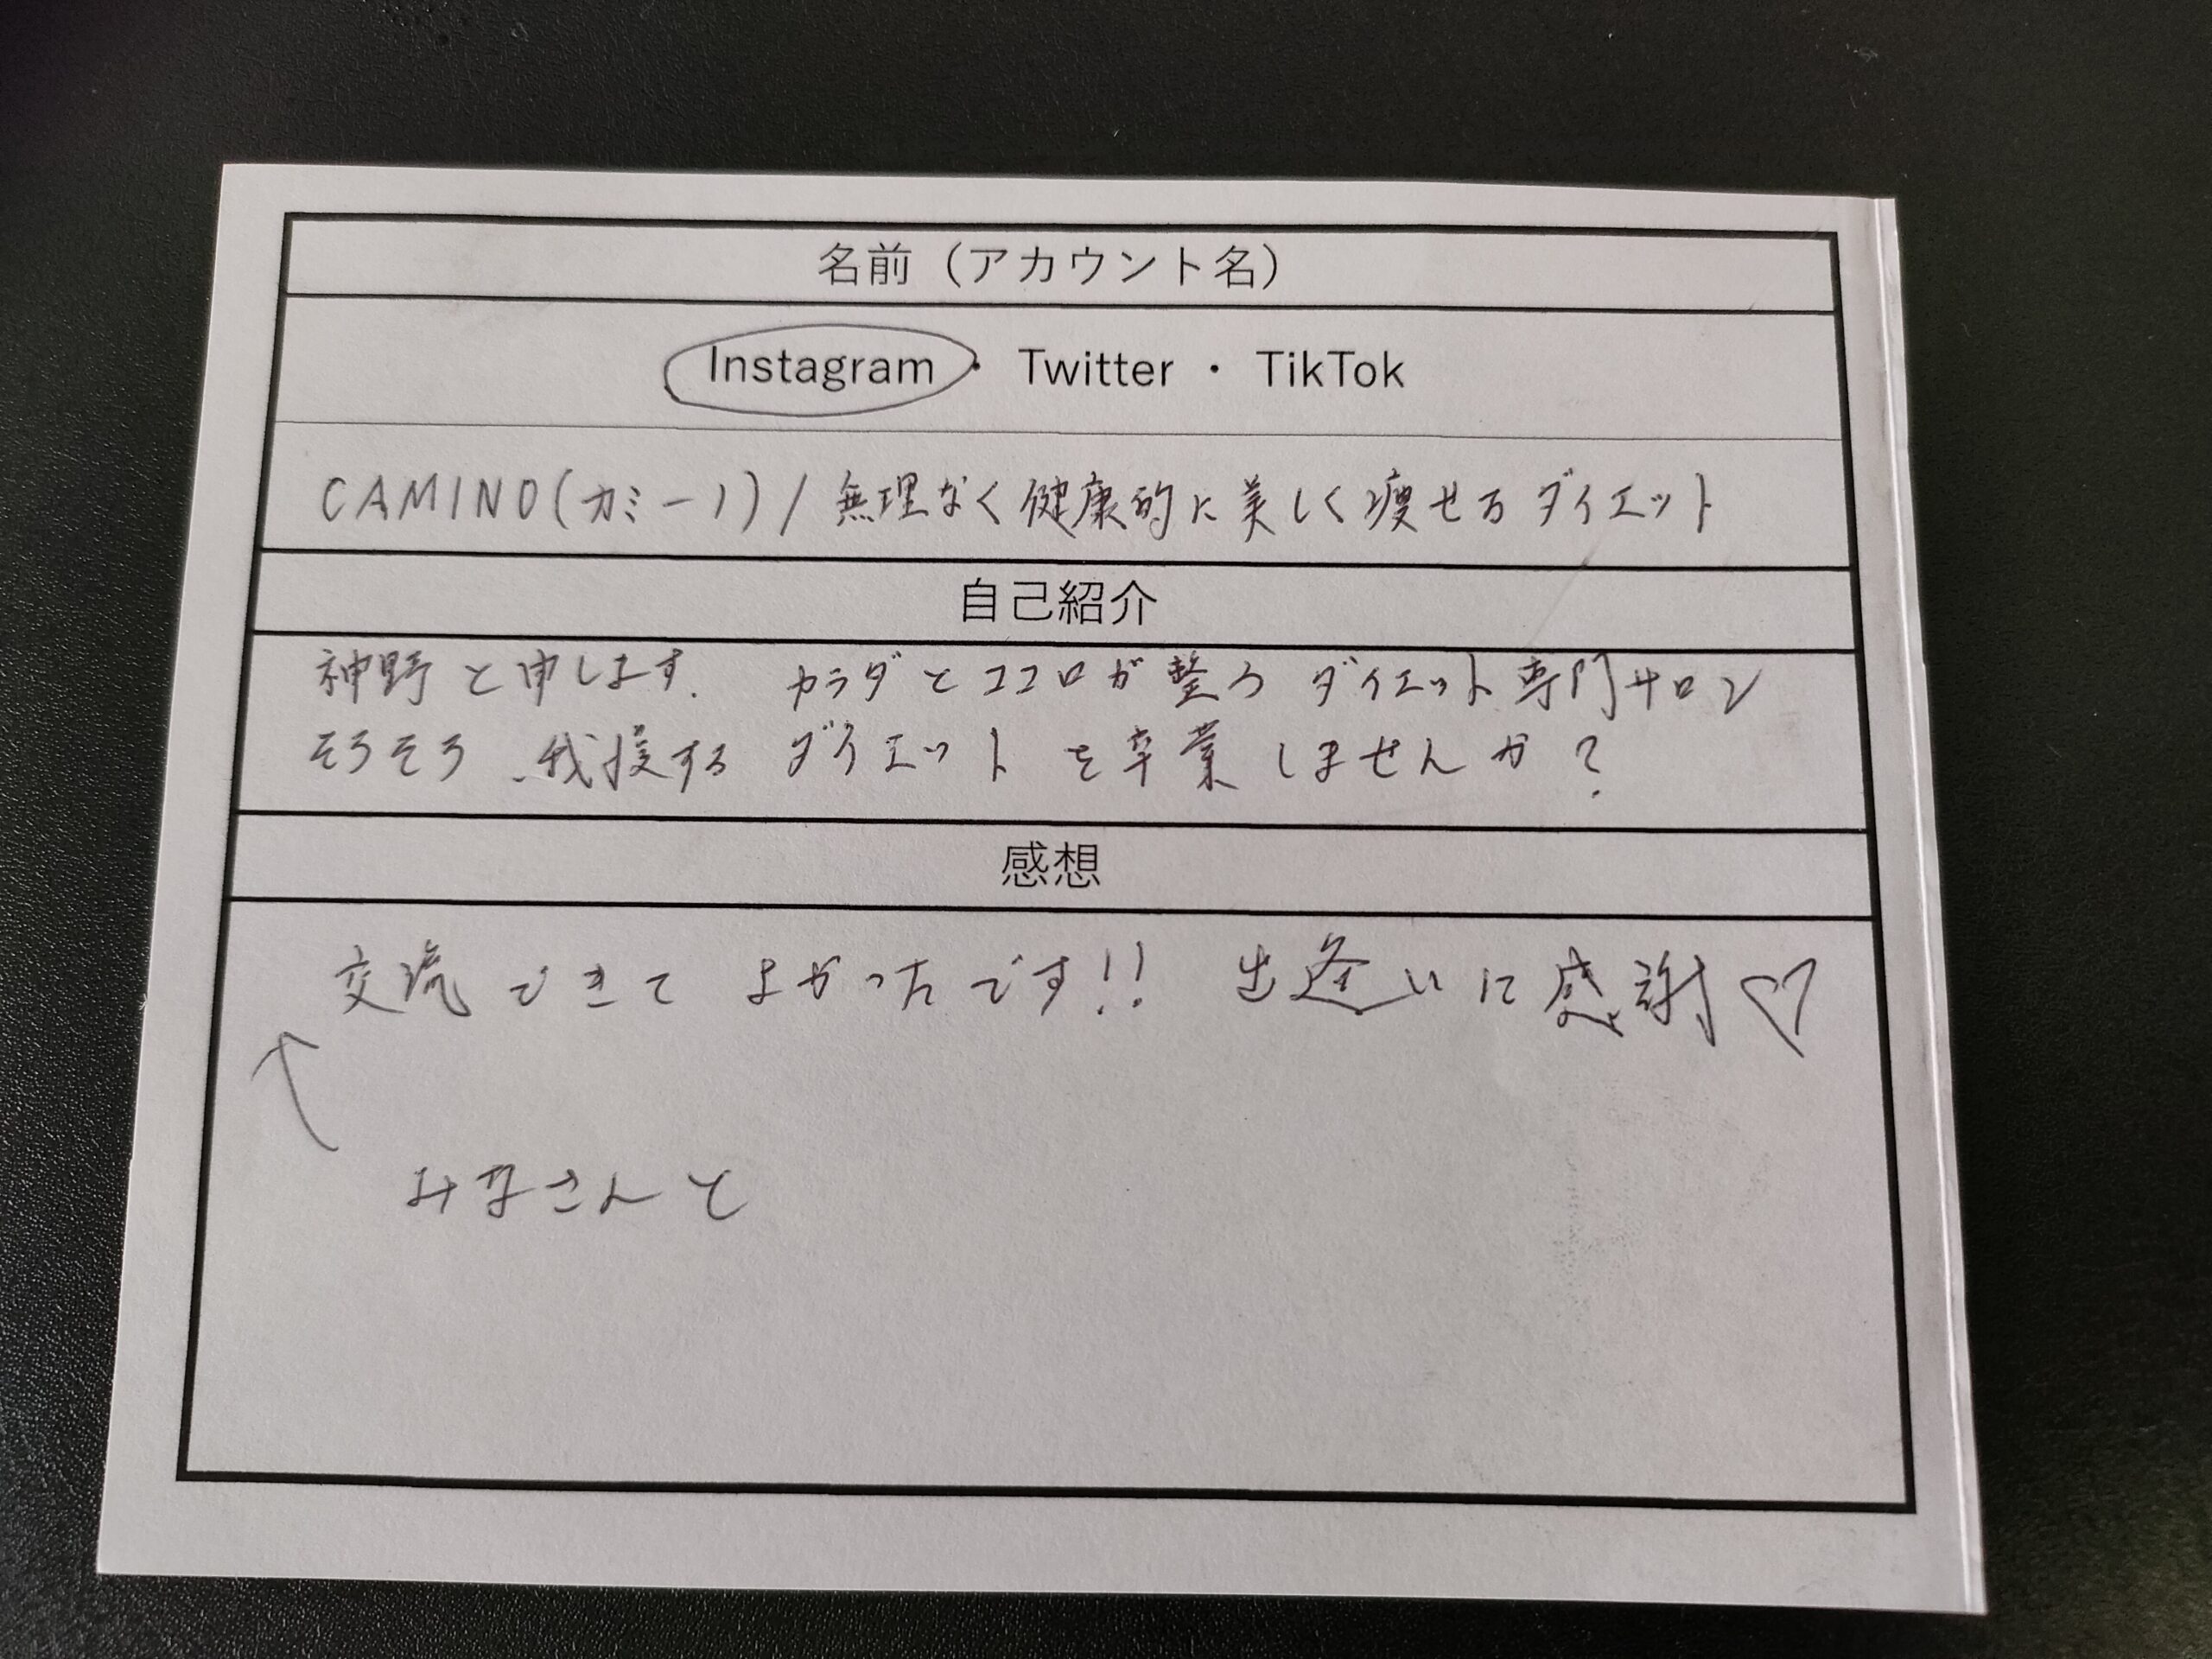 名前（アカウント名）
Instagram・ Twitter ・ TikTok
CAMINO(カミーノ) / 無理なく健康的に美しく痩せるダイエット
自己紹介
神野と申します. カラダとココロが整う ダイエット専門サロン
そろそろ、我慢する ダイエット を卒業しませんか？
感想
交流できて よかったです!! 出逢いに感謝♡
↑
みなさんと